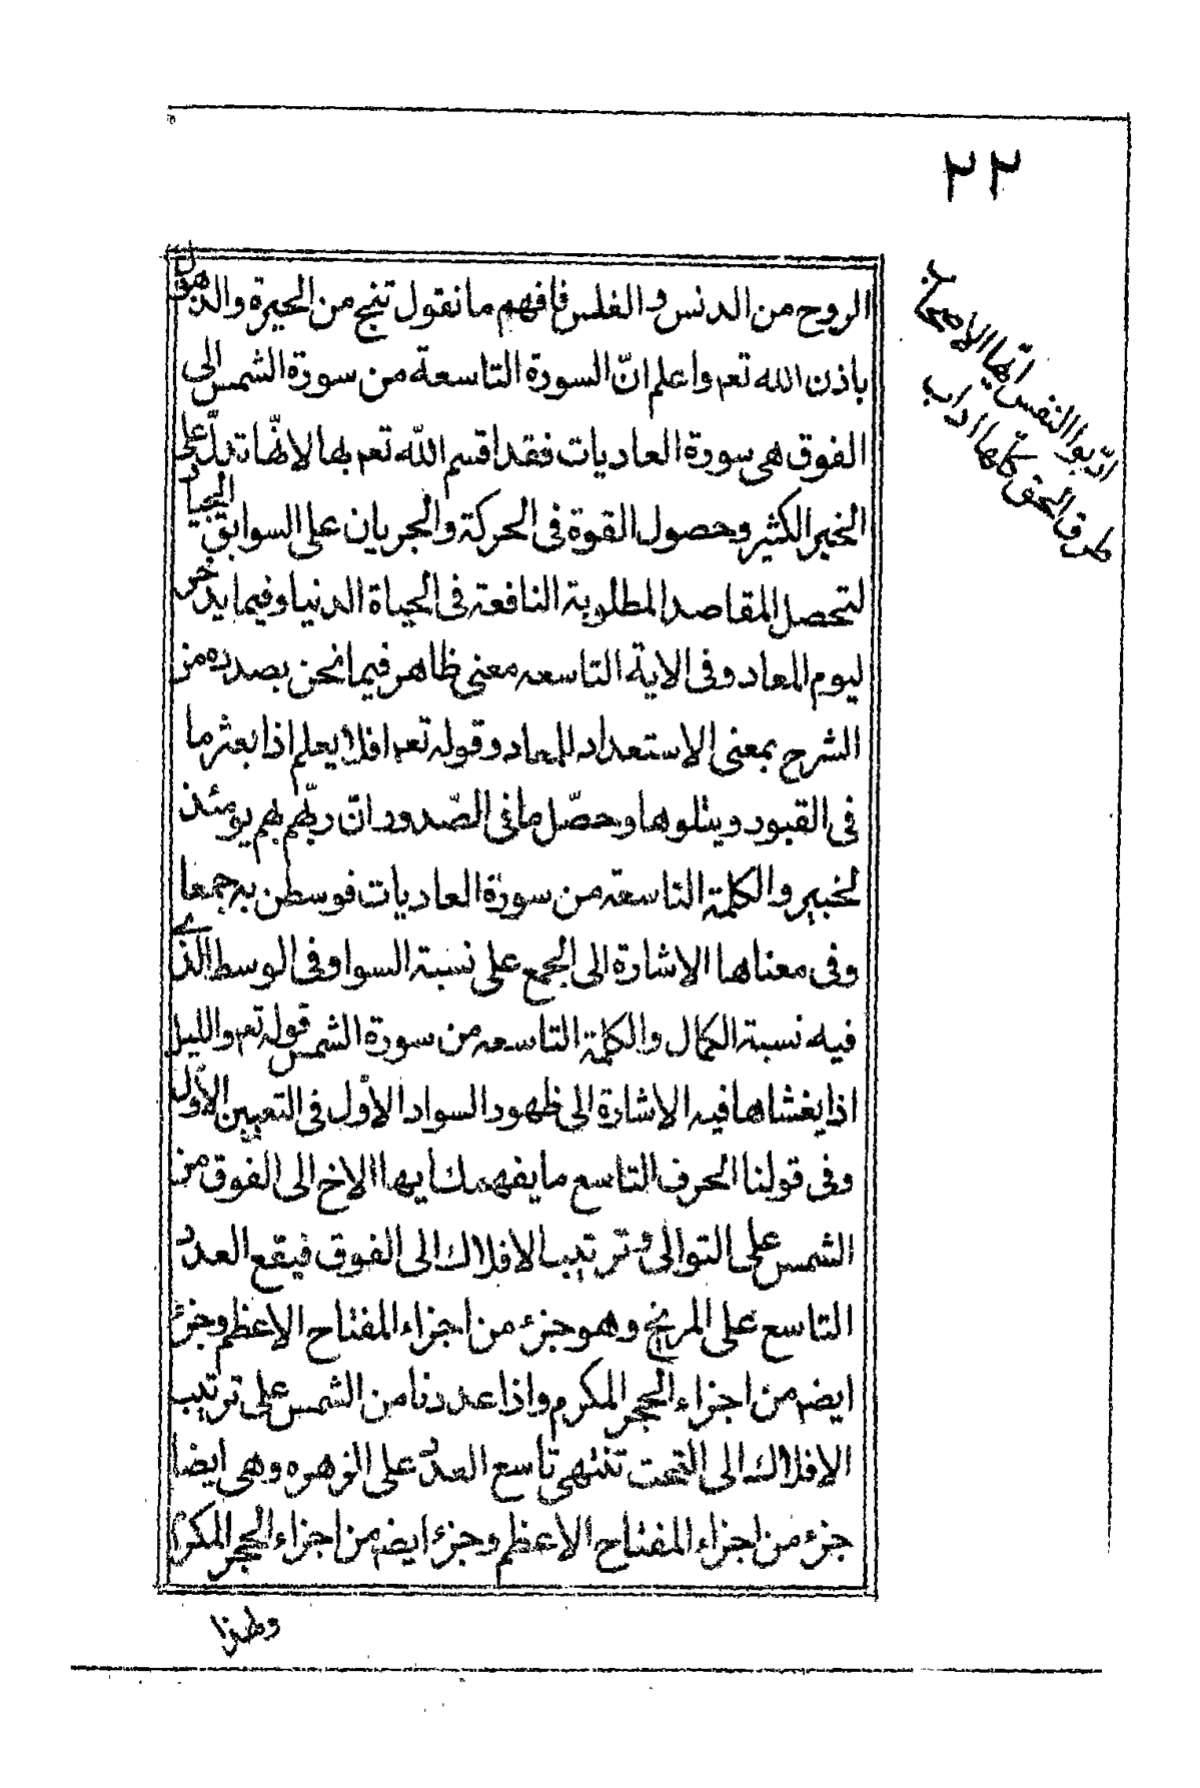 ٢٢
ادّبوا النفس ايّها الاصحاب
طرق الحق كلّها اداب
الروح من الدنس والفلس فافهم ما نقول تنج من الحيرة والذهول
باذن الله تعم واعلم انّ السورة التاسعة من سورة الشمس الى
الفوق هى سورة العاديات فقد اقسم اللّه تعم بها لانّها تدلّ على
الخير الكثير وحصول القوة فى الحركة والجريان على السوابق الجياد
لتحصل المقاصد المطلوبة النافعة فى الحياة الدنيا وفيما يدخر
ليوم المعاد وفى الاية التاسعه معنى ظاهر فيما نحن بصدده من
الشرح بمعنى الاستعداد للمعاد وقوله تعم افلا يعلم اذا بعثر ما
فى القبور ويتلوها وحصّل ما فى الصّدور انّ ربّهم بهم يومئذ
لخبير والكلمة التاسعة من سورة العاديات فوسطن به جمعا
وفى معناها الاشارة الى الجمع على نسبة السوا وفى الوسط الذى
فيه نسبة الكمال والكلمة التاسعه من سورة الشمس قوله تعم والليل
اذا يغشاها فيه الاشارة الى ظهور السواد الاوّل فى التعيين الاوّل
وفى قولنا الحرف التاسع ما يفهمك ايها الاخ الى الفوق من
الشمس على التوالى وترتيب الافلاك الى الفوق فيقع العدد
التاسع على المريخ وهو جزء من اجزاء المفتاح الاعظم وجزء
ايضه من اجزاء الحجر المكرم واذا عددنا من الشمس على ترتيب
الافلاك الى التحت تنتهى تاسع العدد على الزهره وهى ايضا
جزء من اجزاء المفتاح الاعظم وجزء ايضه من اجزاء الحجر المكرم
ولهذا